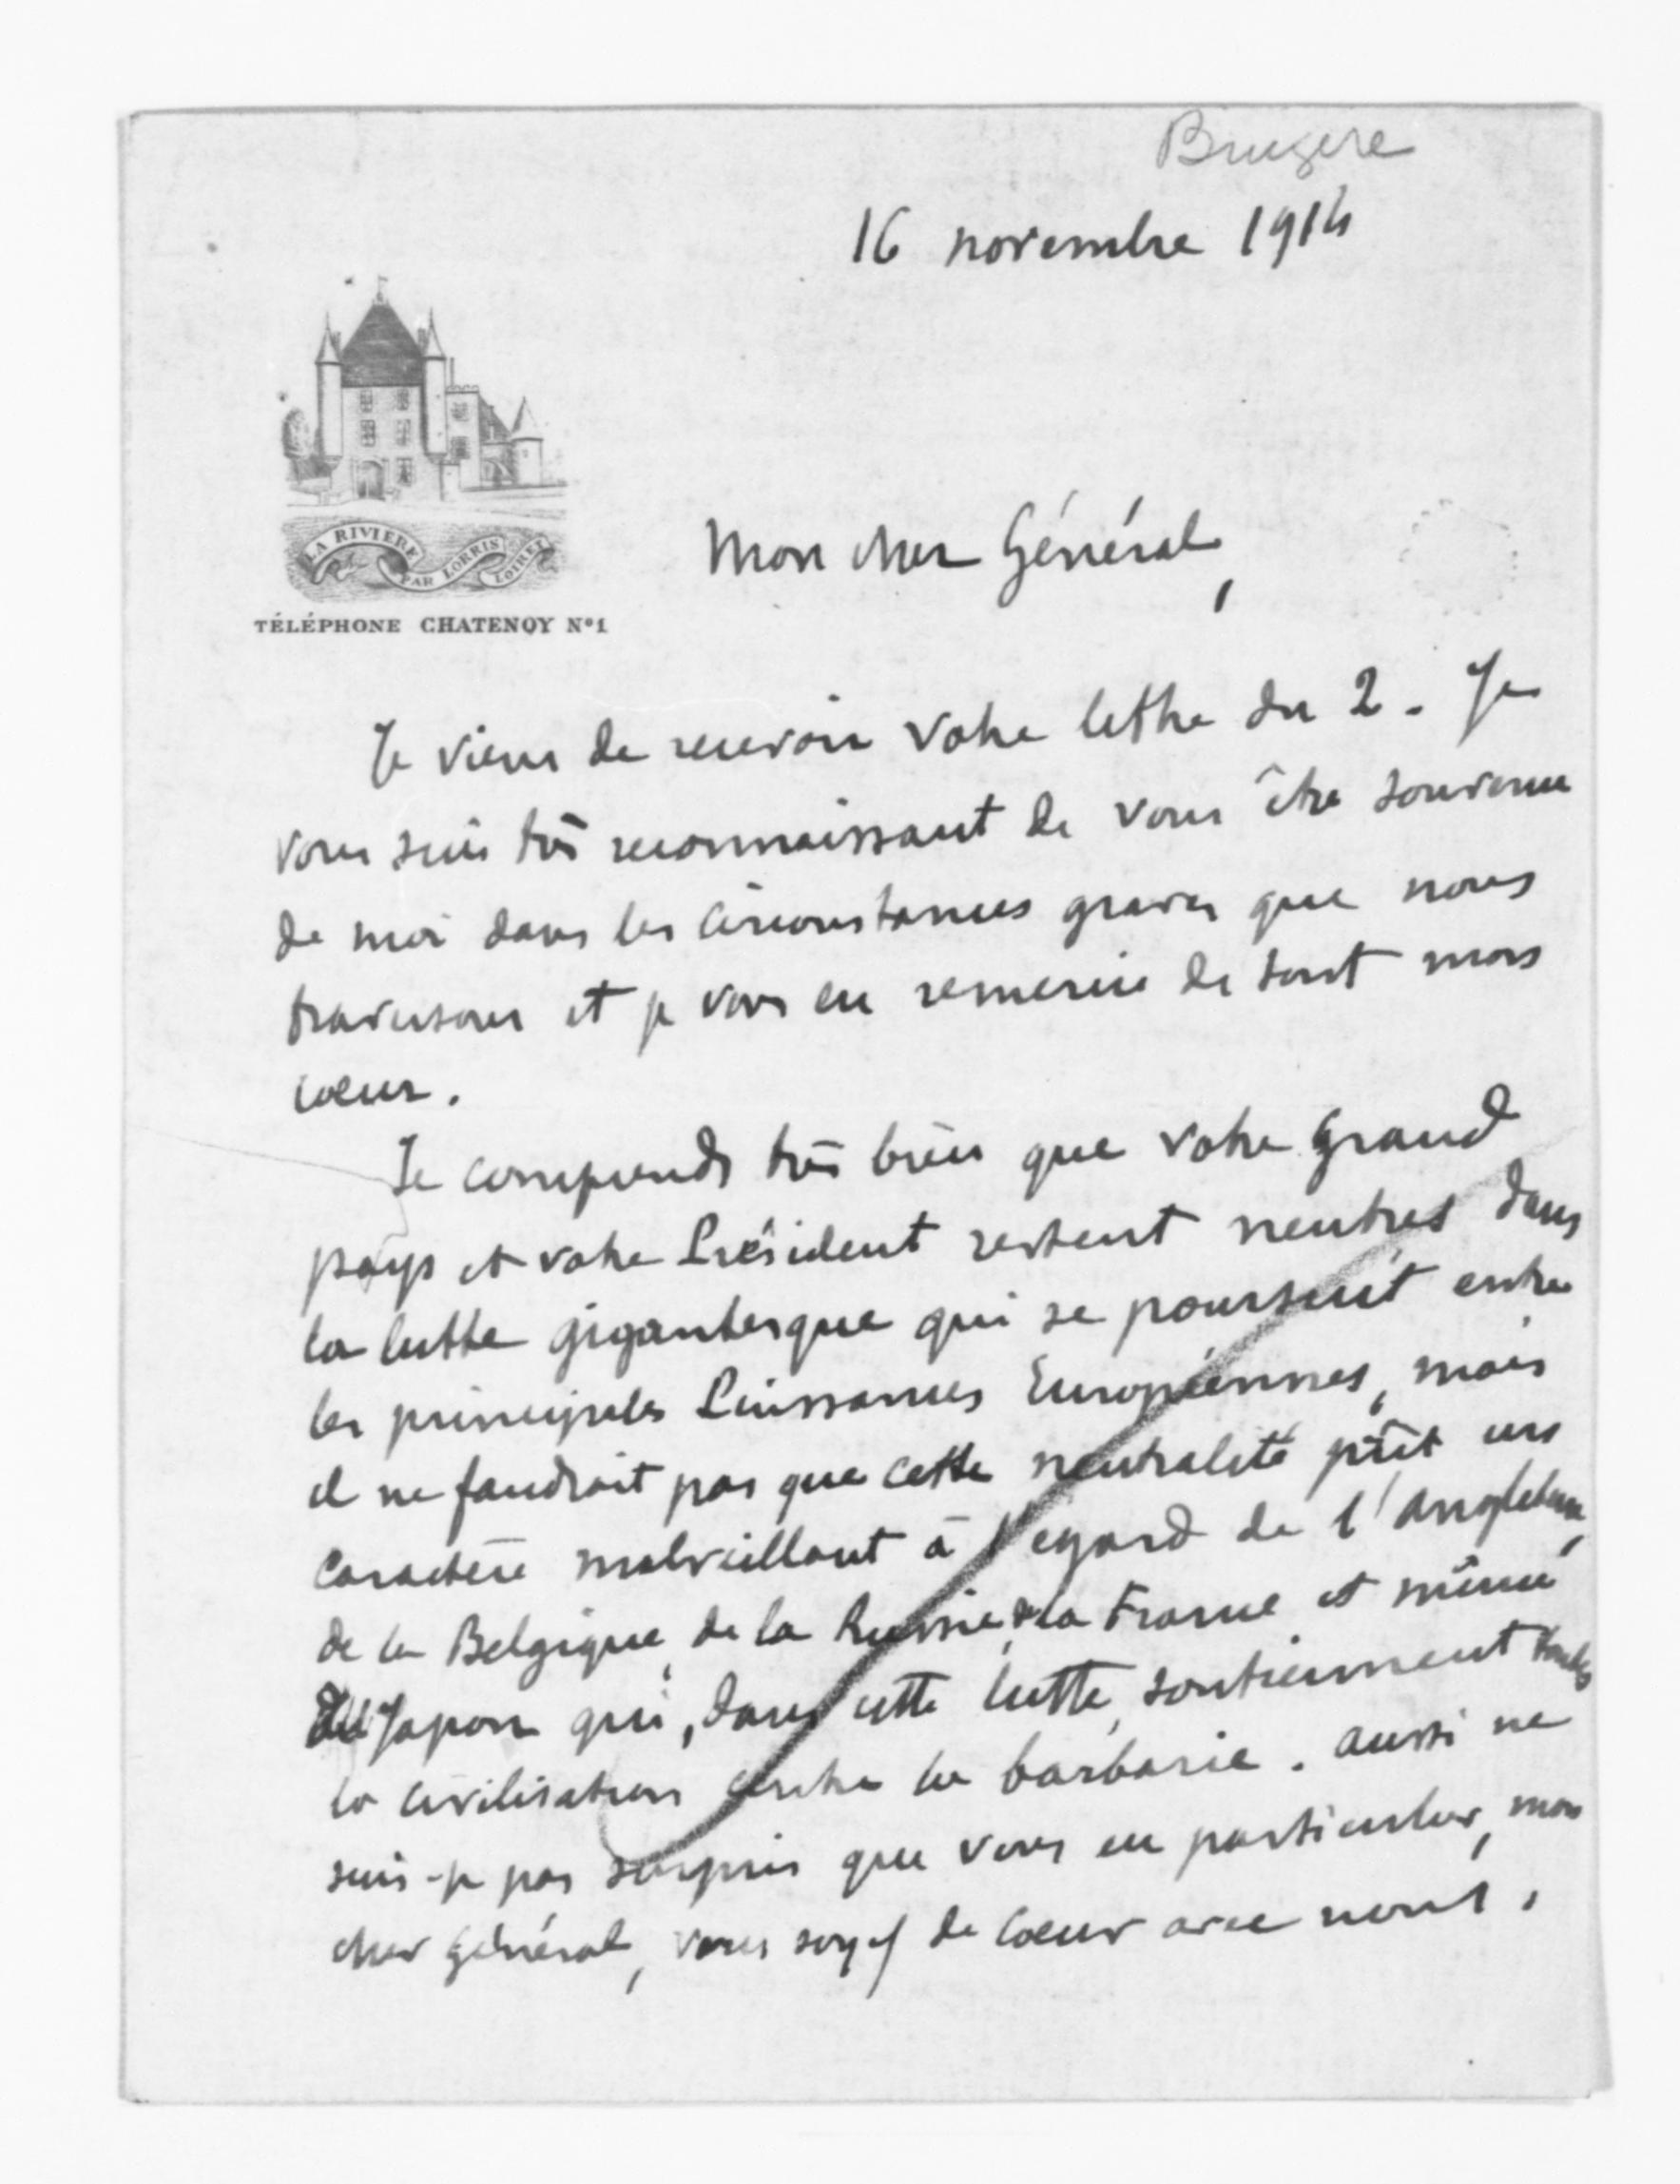 Brugere
16 novembre 1914
LA RIVIERE
PAR LORRIS
LOIRET
TÉLÉPHONE CHATENOY Nº1
Mon cher Général,
Je viens de recevoir votre lettre du 2. Je
vous suis très reconnaissant de vous être souvenu
de moi dans les circonstances graves que nous
traversons et je vous en remercie de tout mon
coeur.
Je comprends très bien que votre Grand
pays et votre Président restent neutres dans
la lutte gigantesque qui se poursuit entre
les principales Puissances Européennes, mais
il ne faudrait pas que cette neutralité prît un
caractère malveillant à l'égard de l'Angleterre,
de la Belgique, de la Russie, de la France et même
du Japon qui, dans cette lutte, soutiennent
la civilisation contre la barbarie. Aussi ne
suis-je pas surpris que vous en particulier, mon
cher Général, vous soyez de coeur avec nous.